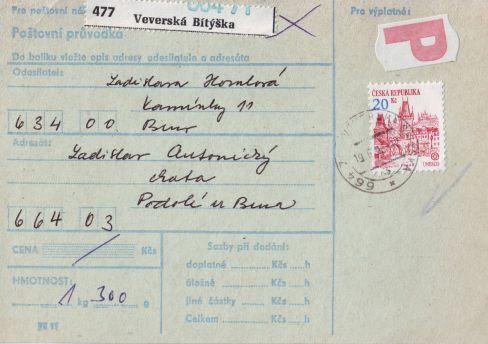 Pro poštovní
664 71
477 Veverská Bítýška
Pro výplatné:
Poštovní průvodka
Do balíku vložte opis adresy odesílatele a adresáta
Odesílatel:
Ladislava Homolová
Kamínky 11
634 00 Brno
Adresát:
Ladislav Antonický
chata
Podolí u Brna
664 03
CENA Kčs
HMOTNOST:
1 kg 300 g
Sazby při dodání:
doplatné Kčs h
úložné Kčs h
jiné částky Kčs h
Celkem Kčs h
P
ČESKÁ REPUBLIKA
20 Kč
UNESCO
664 7